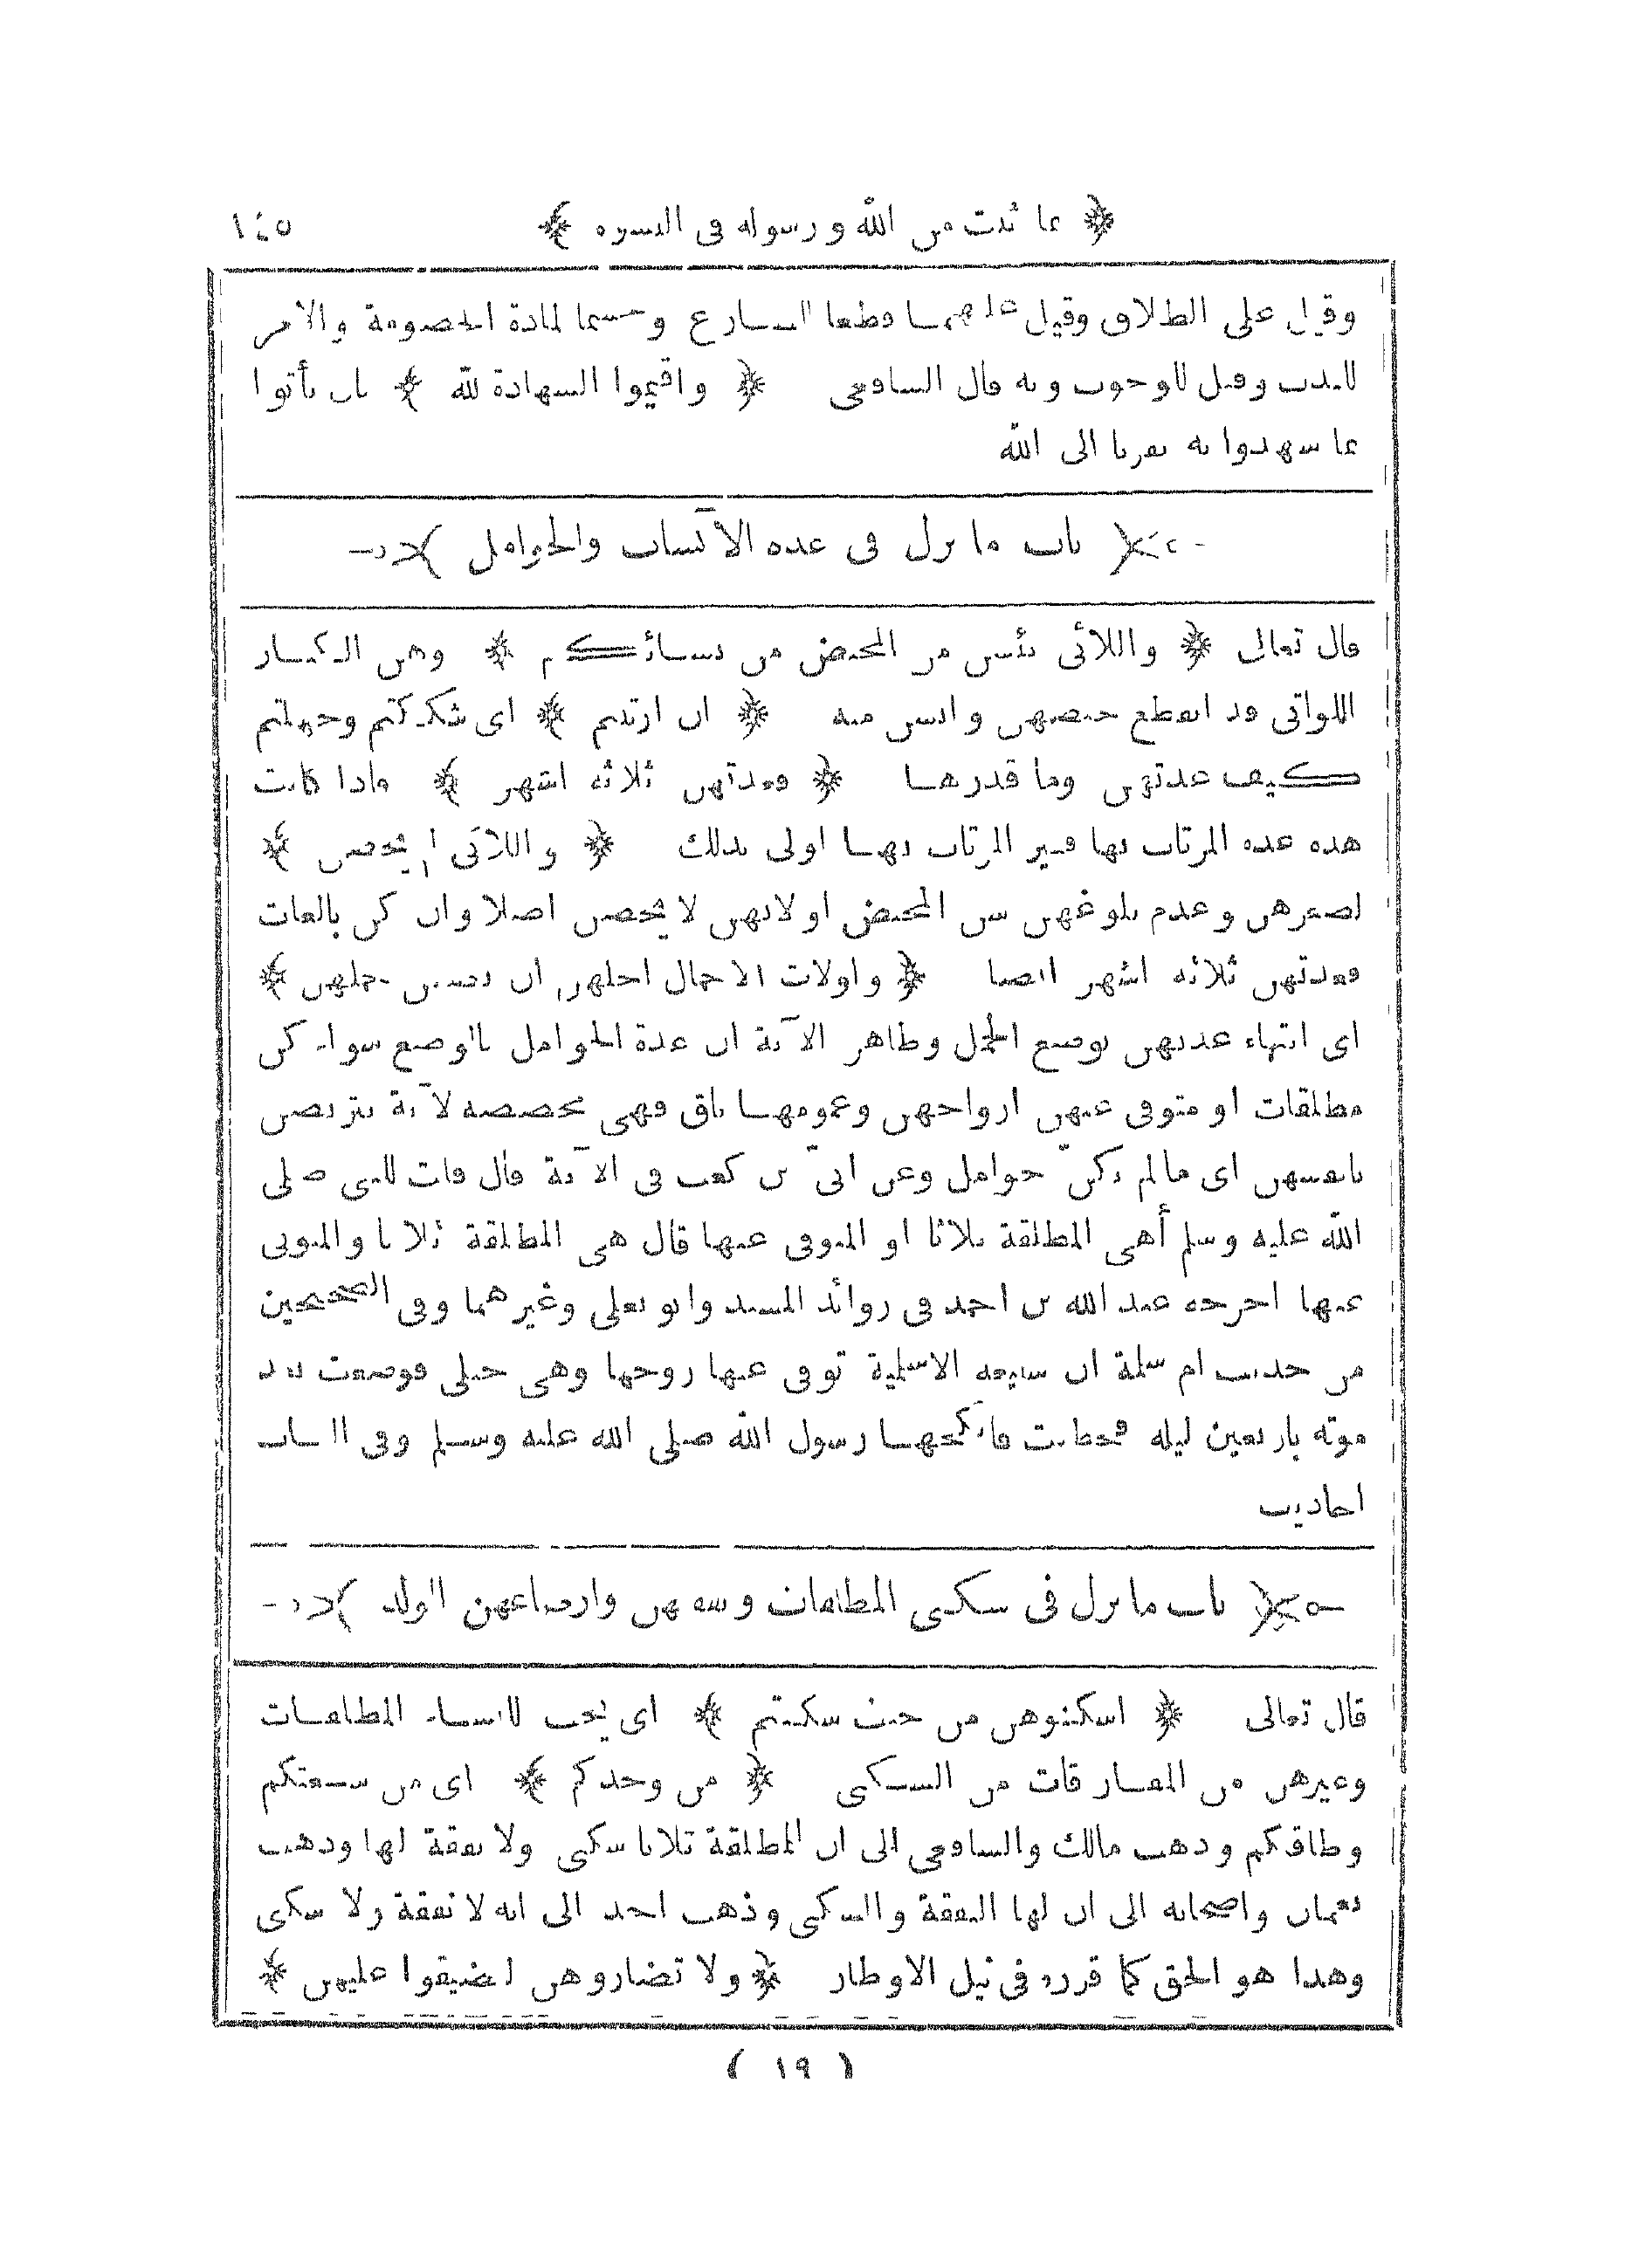 ﴿ بما ثبت من الله ورسوله فى النسوة ﴾ ١٤٥
وقيل على الطلاق وقيل عليهما قطعا للتنازع وحسما لمادة الخصومة والامر
للندب وقيل للوجوب وبه قال الشافعى ﴿ واقيموا الشهادة لله ﴾ بان يأتوا
بما شهدوا به تقربا الى الله
﴿ باب ما نزل فى عدة الآئسات والحوامل ﴾
قال تعالى ﴿ واللائى يئسن من المحيض من نسائكم ﴾ وهن الكبار
اللواتى قد انقطع حيضهن وايسن منه ﴿ ان ارتبتم ﴾ اى شككتم وجهلتم
كيف عدتهن وما قدرها ﴿ فعدتهن ثلاثة اشهر ﴾ فاذا كانت
هذه عدة المرتاب بها فغير المرتاب بها اولى بذلك ﴿ واللائى لم يحضن ﴾
لصغرهن وعدم بلوغهن سن المحيض او لانهن لا يحضن اصلا وان كن بالغات
فعدتهن ثلاثة اشهر ايضا ﴿ واولات الاحمال اجلهن ان يضعن حملهن ﴾
اى انتهاء عدتهن بوضع الحمل وظاهر الآية ان عدة الحوامل بالوضع سواء كن
مطلقات او متوفى عنهن ازواجهن وعمومها باق فهى مخصصة لآية يتربصن
بانفسهن اى ما لم يكنّ حوامل وعن ابىّ بن كعب فى الآية قال قلت للنبى صلى
الله عليه وسلم أهى المطلقة ثلاثا او المتوفى عنها قال هى المطلقة ثلاثا والمتوفى
عنها اخرجه عبد الله بن احمد فى زوائد المسند وابو يعلى وغيرهما وفى الصحيحين
من حديث ام سلمة ان سبيعة الاسلمية توفى عنها زوجها وهى حبلى فوضعت بعد
موته باربعين ليلة فخطبت فانكحها رسول الله صلى الله عليه وسلم وفى الباب
احاديث
﴿ باب ما نزل فى سكنى المطلقات ونفقتهن وارضاعهن الولد ﴾
قال تعالى ﴿ اسكنوهن من حيث سكنتم ﴾ اى يجب للنساء المطلقات
وغيرهن من المفارقات من السكنى ﴿ من وجدكم ﴾ اى من سعتكم
وطاقتكم وذهب مالك والشافعى الى ان للمطلقة ثلاثا سكنى ولا نفقة لها وذهب
نعمان واصحابه الى ان لها النفقة والسكنى وذهب احمد الى انه لا نفقة ولا سكنى
وهذا هو الحق كما قرره فى نيل الاوطار ﴿ ولا تضاروهن لتضيقوا عليهن ﴾
( ١٩ )